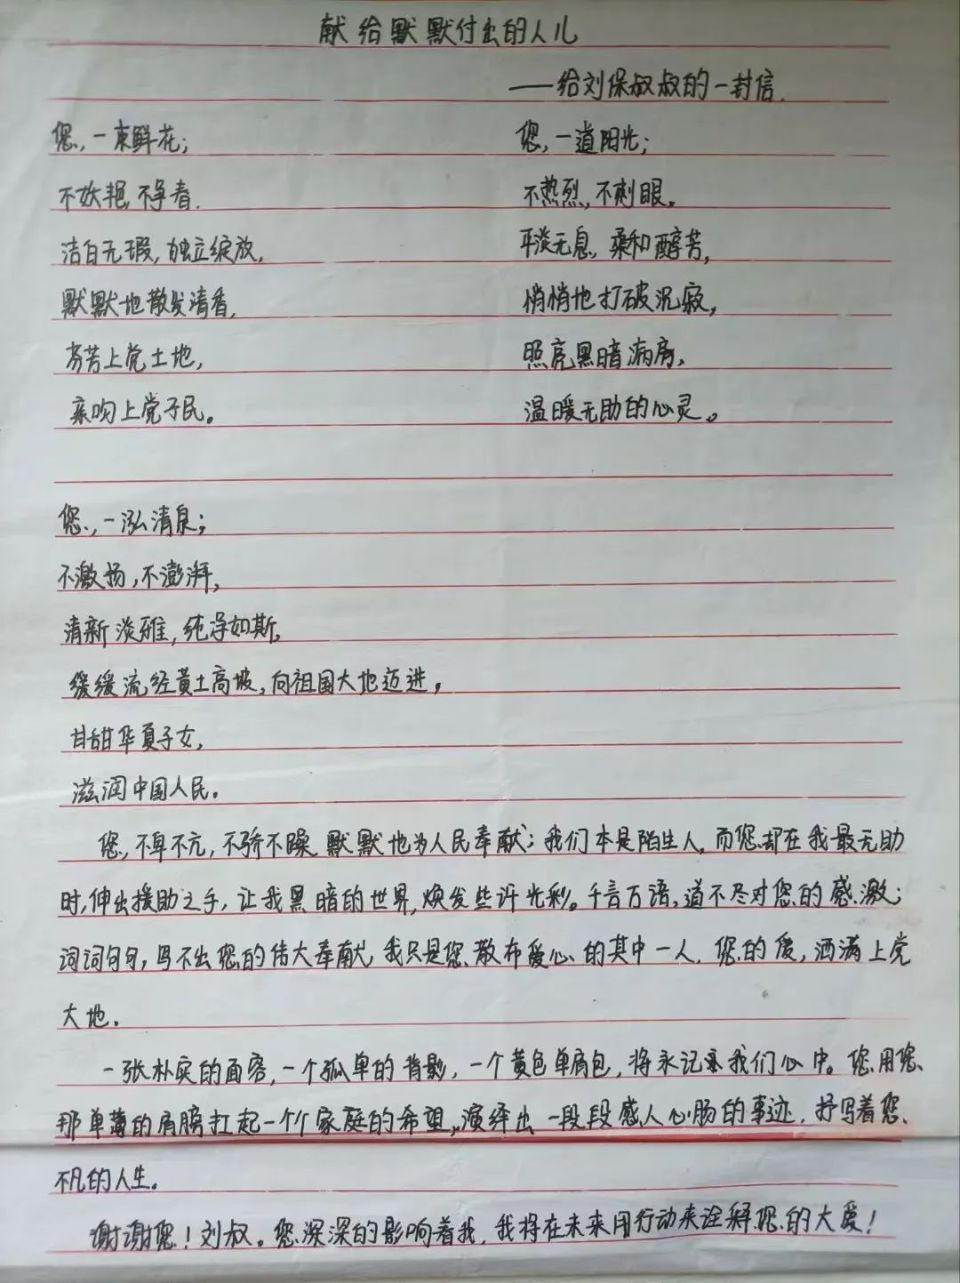 献给默默付出的人儿
——给刘保叔叔的一封信.
您,一束鲜花;
不妖艳,不争春.
洁白无瑕,独立绽放,
默默地散发清香,
芬芳上党土地,
亲吻上党子民。
您,一道阳光;
不热烈,不刺眼。
平淡无息,柔和醇芳,
悄悄地打破沉寂,
照亮黑暗病房,
温暖无助的心灵。
您,一泓清泉;
不激扬,不澎湃,
清新淡雅,纯净如斯,
缓缓流经黄土高坡,向祖国大地迈进,
甘甜华夏子女,
滋润中国人民。
您,不卑不亢,不骄不躁,默默地为人民奉献;我们本是陌生人,而您却在我最无助
时,伸出援助之手,让我黑暗的世界,焕发些许光彩。千言万语,道不尽对您的感激;
词词句句,写不出您的伟大奉献,我只是您散布爱心的其中一人,您的爱,洒满上党
大地.
一张朴实的面容,一个孤单的背影,一个黄色单肩包,将永记系我们心中。您用您
那单薄的肩膀扛起一个个家庭的希望,演绎出一段段感人心肠的事迹,抒写着您
不凡的人生。
谢谢您!刘叔。您深深的影响着我,我将在未来用行动来诠释您的大爱!